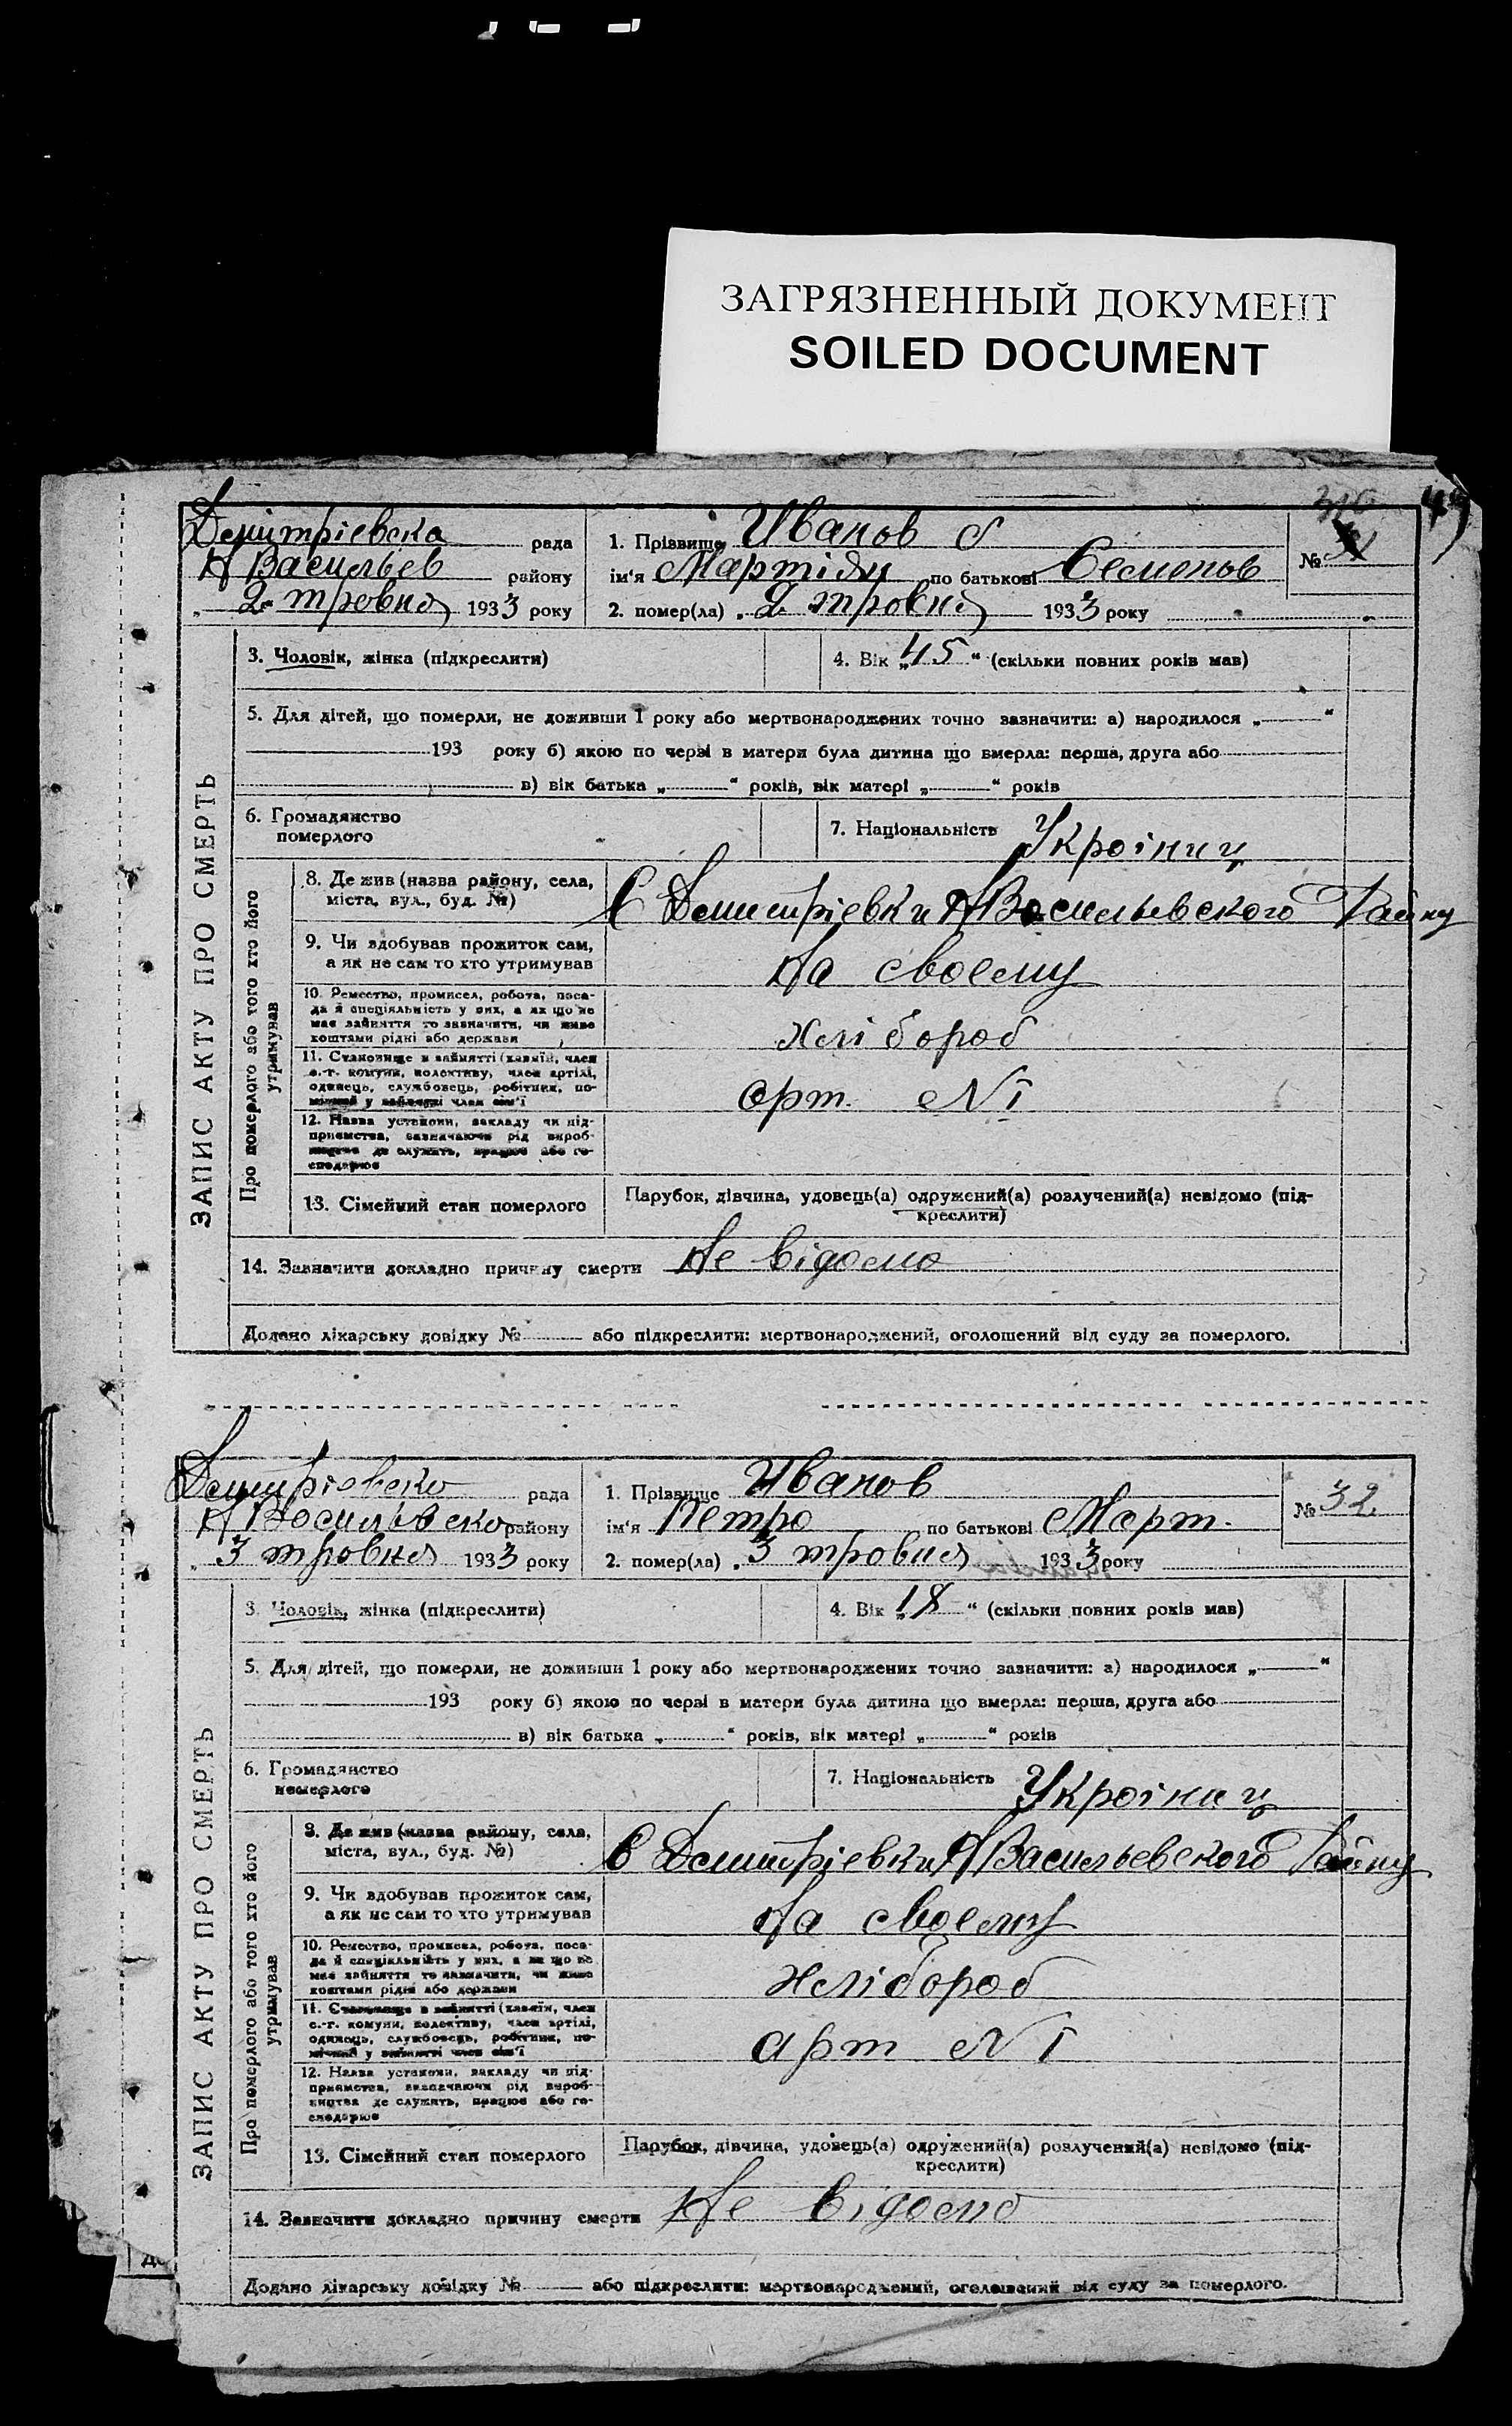 ЗАГРЯЗНЕННЫЙ ДОКУМЕНТ
SOILED DOCUMENT
Демитріевска рада
Н Васильев району
„ 2 тровня 1933 року
1. Прізвище Иванов
ім'я по батькові Семенов
2. помер(ла) „ 2 тровня 1933 року
№ 31
ЗАПИС АКТУ ПРО СМЕРТЬ
3. Чоловік, жінка (підкреслити)
4. Вік „45“ (скільки повних років мав)
5. Для дітей, що померли, не доживши 1 року або мертвонароджених точно зазначити: а) народилося „ “
193 року б) якою по черзі в матери була дитина що вмерла: перша, друга або
в) вік батька „ “ років, вік матері „ “ років
6. Громадянство
померлого
7. Національність Україниц
Про померлого або того хто його
утримував
8. Де жив (назва району, села,
міста, вул., буд. №)
С Демитріевки Н Васильевского Району
9. Чи здобував прожиток сам,
а як не сам то хто утримував
На своему
10. Ремество, промисел, робота, поса-
да й спеціяльність у них, а як що не
має зайняття то зазначити, чи живе
коштами рідні або держави
хлібороб
11. Становище в зайнятті (хазяїн, член
с.-г. комуни, колективу, член артілі,
одинець, службовець, робітник, по-
мічний у зайнятті член сім'ї
орт. № 1
12. Назва установи, закладу чи під-
приємства, зазначаючи рід вироб-
ництва де служить, працює або го-
сподарює
13. Сімейний стан померлого
Парубок, дівчина, удовець(а) одружений(а) розлучений(а) невідомо (під-
креслити)
14. Зазначити докладно причину смерти Не відомо
Додано лікарську довідку № або підкреслити: мертвонароджений, оголошений від суду за померлого.
Демитріевско рада
Н Восилівско району
„ 3 тровня 1933 року
1. Прізвище Иванов
ім'я Петро по батькові Март.
2. помер(ла) „ 3 тровня 1933 року
№ 32
ЗАПИС АКТУ ПРО СМЕРТЬ
3. Чоловік, жінка (підкреслити)
4. Вік „18“ (скільки повних років мав)
5. Для дітей, що померли, не доживши 1 року або мертвонароджених точно зазначити: а) народилося „ “
193 року б) якою по черзі в матери була дитина що вмерла: перша, друга або
в) вік батька „ “ років, вік матері „ “ років
6. Громадянство
померлого
7. Національність Українац
Про померлого або того хто його
утримував
8. Де жив (назва району, села,
міста, вул., буд. №)
С Демитріевки Н Васильевского Району
9. Чи здобував прожиток сам,
а як не сам то хто утримував
На своему
10. Ремество, промисел, робота, поса-
да й спеціяльність у них, а як що не
має зайняття то зазначити, чи живе
коштами рідні або держави
хлібороб
11. Становище в зайнятті (хазяїн, член
с.-г. комуни, колективу, член артілі,
одинець, службовець, робітник, по-
мічний у зайнятті член сім'ї
арт № 1
12. Назва установи, закладу чи під-
приємства, зазначаючи рід вироб-
ництва де служить, працює або го-
сподарює
13. Сімейний стан померлого
Парубок, дівчина, удовець(а) одружений(а) розлучений(а) невідомо (під-
креслити)
14. Зазначити докладно причину смерти Не відомо
Додано лікарську довідку № або підкреслити: мертвонароджений, оголошений від суду за померлого.